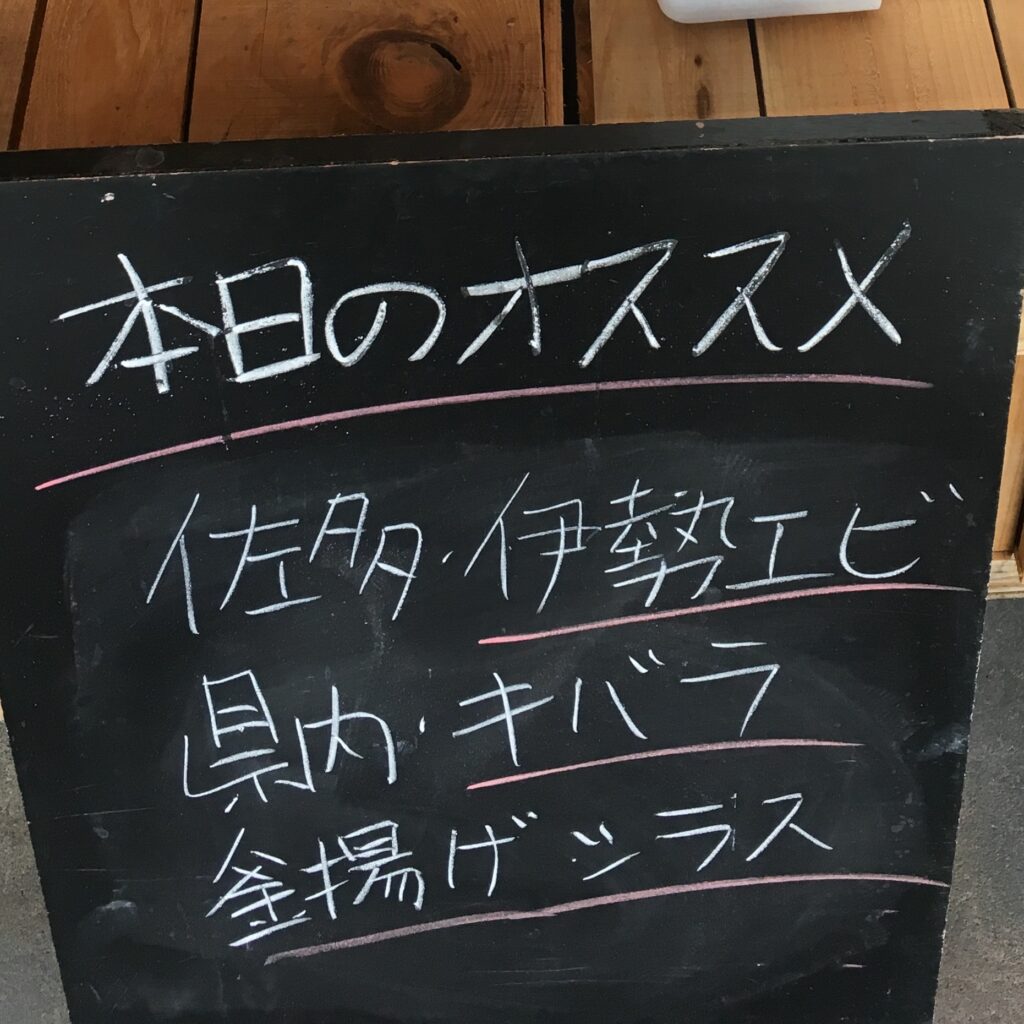 本日のオススメ
佐多・伊勢エビ
県内・キバラ
釜揚げシラス